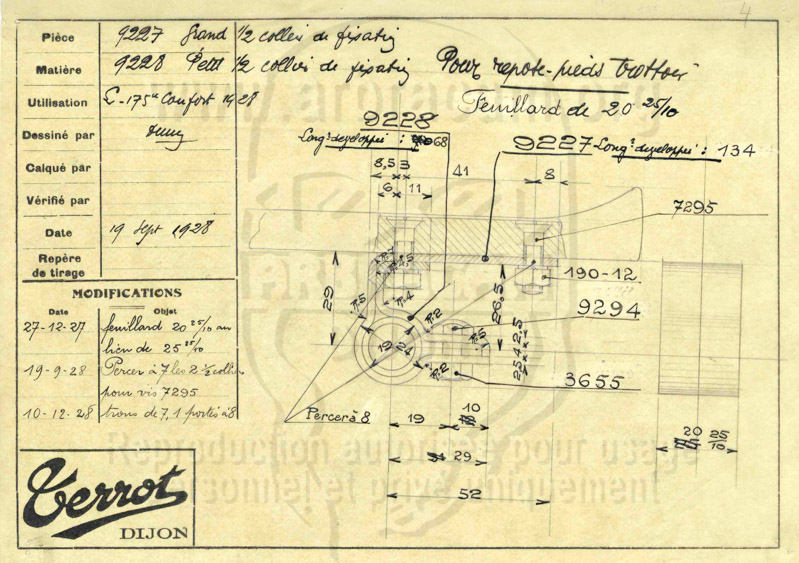 4
Pièce 9227 Grand 1/2 collier de fixation
Matière 9228 Petit 1/2 collier de fixation
Pour repose-pieds trottoir
Utilisation L-175cc Confort 1928
Feuillard de 20 25/10
Dessiné par
Calqué par
Vérifié par
Date 19 Sept 1928
Repère
de tirage
MODIFICATIONS
Date Objet
27-12-27 feuillard 20 25/10 au
lieu de 25 25/10
19-9-28 Percer à 7 les 2 1/2 collier
pour vis 7295
10-12-28 trous de 7,1 portés à 8
Terrot
DIJON
9228
Longr développée : 68
9227 Longr développée : 134
8,5 3
6 11
41
8
7295
190-12
9294
3655
29
26,5
R.5
R.4
R.2
R.5
R.2
19 24
2,5 4 2,5
Percer à 8
19
10
29
52
20 25/10
www.archives .org
PR
Reproduction autorisée pour usage
personnel et privé uniquement